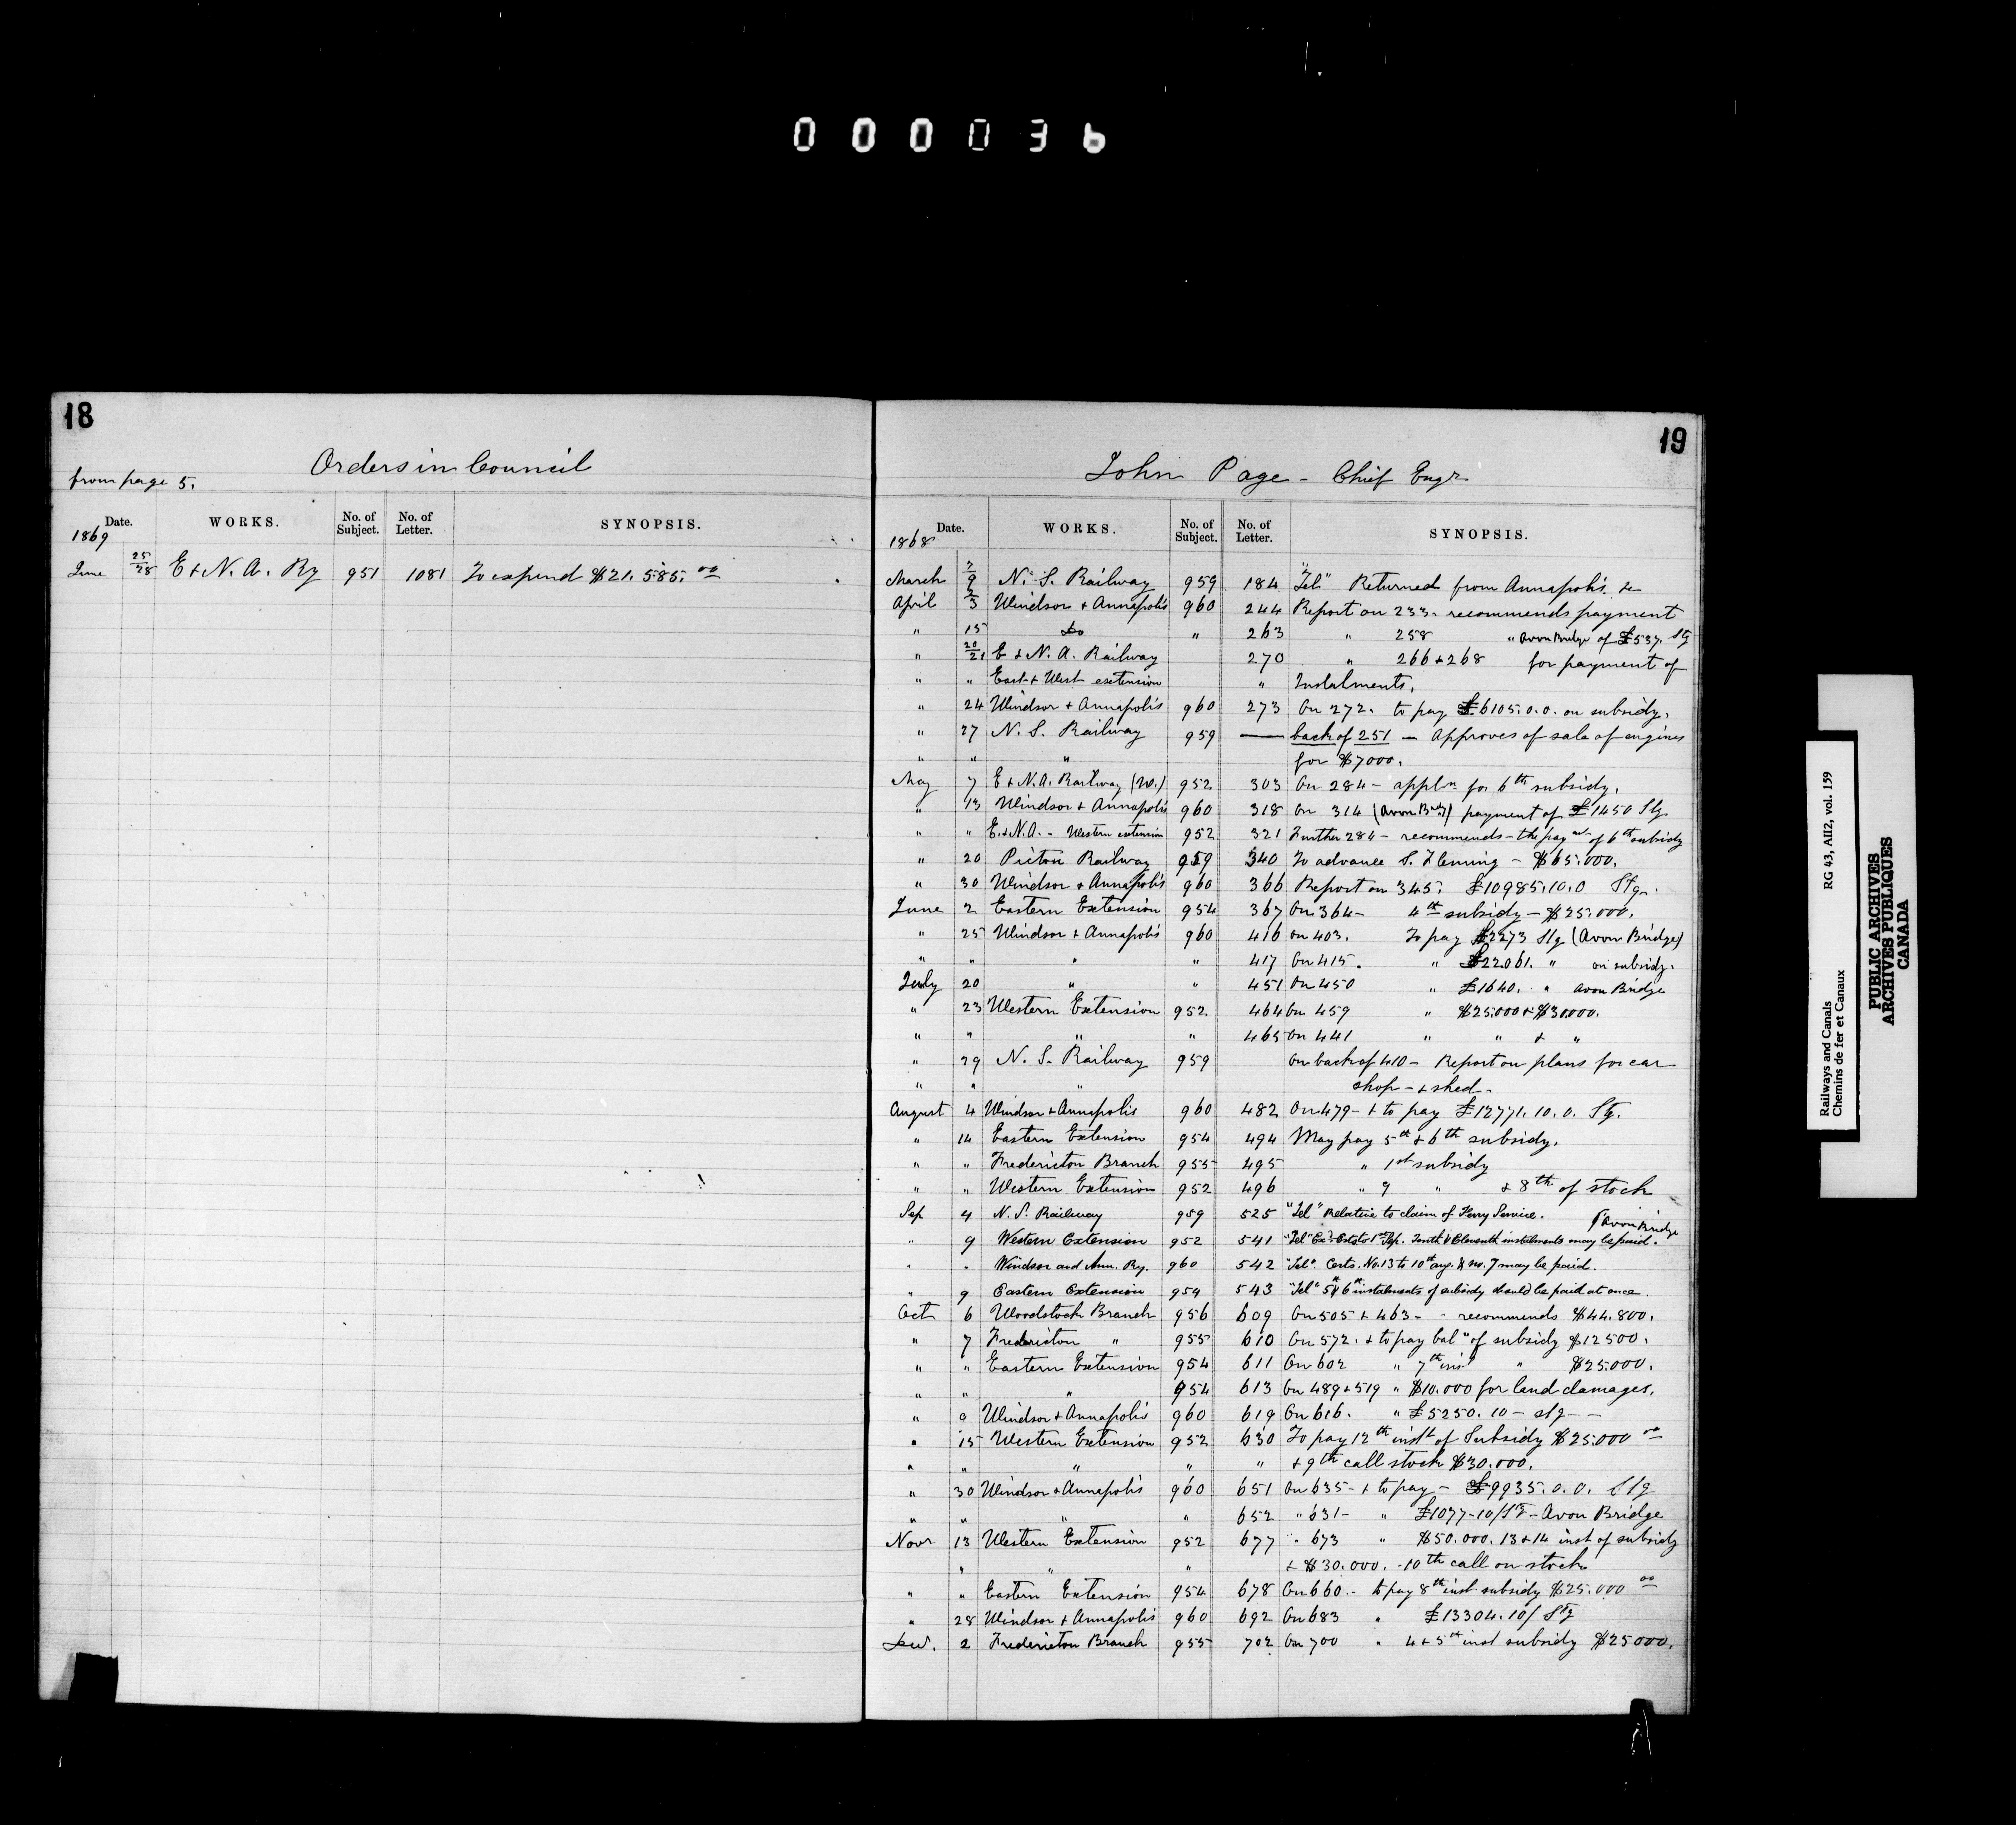 000036
18
Orders in Council
from page 5.
Date. WORKS. No. of Subject. No. of Letter. SYNOPSIS.
1869
June 25/28 E & N. A. Ry 951 1081 To expend $21.585. 00
19
John Page - Chief Engr
Date. WORKS. No. of Subject. No. of Letter. SYNOPSIS.
1868
March 7/9 N. S. Railway 959 184 "Tel" Returned from Annapolis &c
April 2/3 Windsor & Annapolis 960 244 Report on 233. recommends payment
" 15 Do " 263 " 258 " Avon Bridge of £537. Stg
" 20/21 E & N. A. Railway 270 " 266 & 268 for payment of
" " East & West extension " Instalments.
" 24 Windsor & Annapolis 960 273 On 272. to pay £6105.0.0. on subsidy.
" 27 N. S. Railway 959 — back of 251 — Approves of sale of engines
" " " for $7000.
May 7 E & N.A. Railway (W.) 952 303 On 284 - appln for 6th subsidy.
" 13 Windsor & Annapolis 960 318 On 314 (Avon Bridg) payment of £1450 Stg.
" " E. & N.A. - Western extension 952 321 Further 284 - recommends - the paymt of 6th subsidy
" 20 Pictou Railway 959 340 To advance S. Fleming - $65.000.
" 30 Windsor & Annapolis 960 366 Report on 345. £10985.10.0 Stg.
June 2 Eastern Extension 954 367 On 364 - 4th subsidy - $25.000.
" 25 Windsor & Annapolis 960 416 on 403. To pay £2273 Stg (Avon Bridge)
" " " " 417 On 415. " £22061. " on subsidy.
July 20 " " 451 On 450 " £1640. " Avon Bridge
" 23 Western Extension 952 464 On 459 " $25.000 & $30.000.
" " " " 465 On 441 " " & "
" 29 N. S. Railway 959 On back of 410 - Report on plans for car
" " " shop - & shed -
August 4 Windsor & Annapolis 960 482 On 479 - & to pay £12771.10.0. Stg.
" 14 Eastern Extension 954 494 May pay 5th & 6th subsidy.
" " Fredericton Branch 955 495 " 1st subsidy
" " Western Extension 952 496 " 9 " & 8th of stock
Sep 4 N. S. Railway 959 525 "Tel" Relative to claim of Ferry Service.
" 9 Western Extension 952 541 "Tel" Sep. Tenth & Eleventh instalments may be paid. (Avon Bridge
" " Windsor and Ann. Ry. 960 542 "Tel". Certs. No. 13 to 10th aug. & No. 7 may be paid.
" 9 Eastern Extension 954 543 "Tel" 5th & 6th instalments of subsidy should be paid at once.
Oct 6 Woodstock Branch 956 609 On 505 & 463 - - recommends $44.800.
" 7 Fredericton " 955 610 On 572. & to pay bal" of subsidy $12500.
" " Eastern Extension 954 611 On 602 " 7th inst " $25.000.
" " " 954 613 On 489 & 519 " $10.000 for land damages.
" Windsor & Annapolis 960 619 On 616. " £5250.10 - stg - -
" 15 Western Extension 952 630 To pay 12th instt of Subsidy $25.000 00
" " " " " & 9th call stock $30.000.
" 30 Windsor & Annapolis 960 651 On 635 - & to pay - £9935.0.0. Stg
" " " " 652 " 631 - " £1077-10/ Stg - Avon Bridge
Novr 13 Western Extension 952 677 " 673 " $50.000. 13 & 14 inst of subsidy
" " " & $30.000. - 10th call on stock
" " Eastern Extension 954 678 On 660. - to pay 8th inst subsidy $25.000 00
" 28 Windsor & Annapolis 960 692 On 683 " £13304.10/ Stg
Dec. 2 Fredericton Branch 955 702 On 700 " 4 & 5th inst subsidy $25000.
Railways and Canals RG 43, AII2, vol. 159
Chemins de fer et Canaux
PUBLIC ARCHIVES
ARCHIVES PUBLIQUES
CANADA